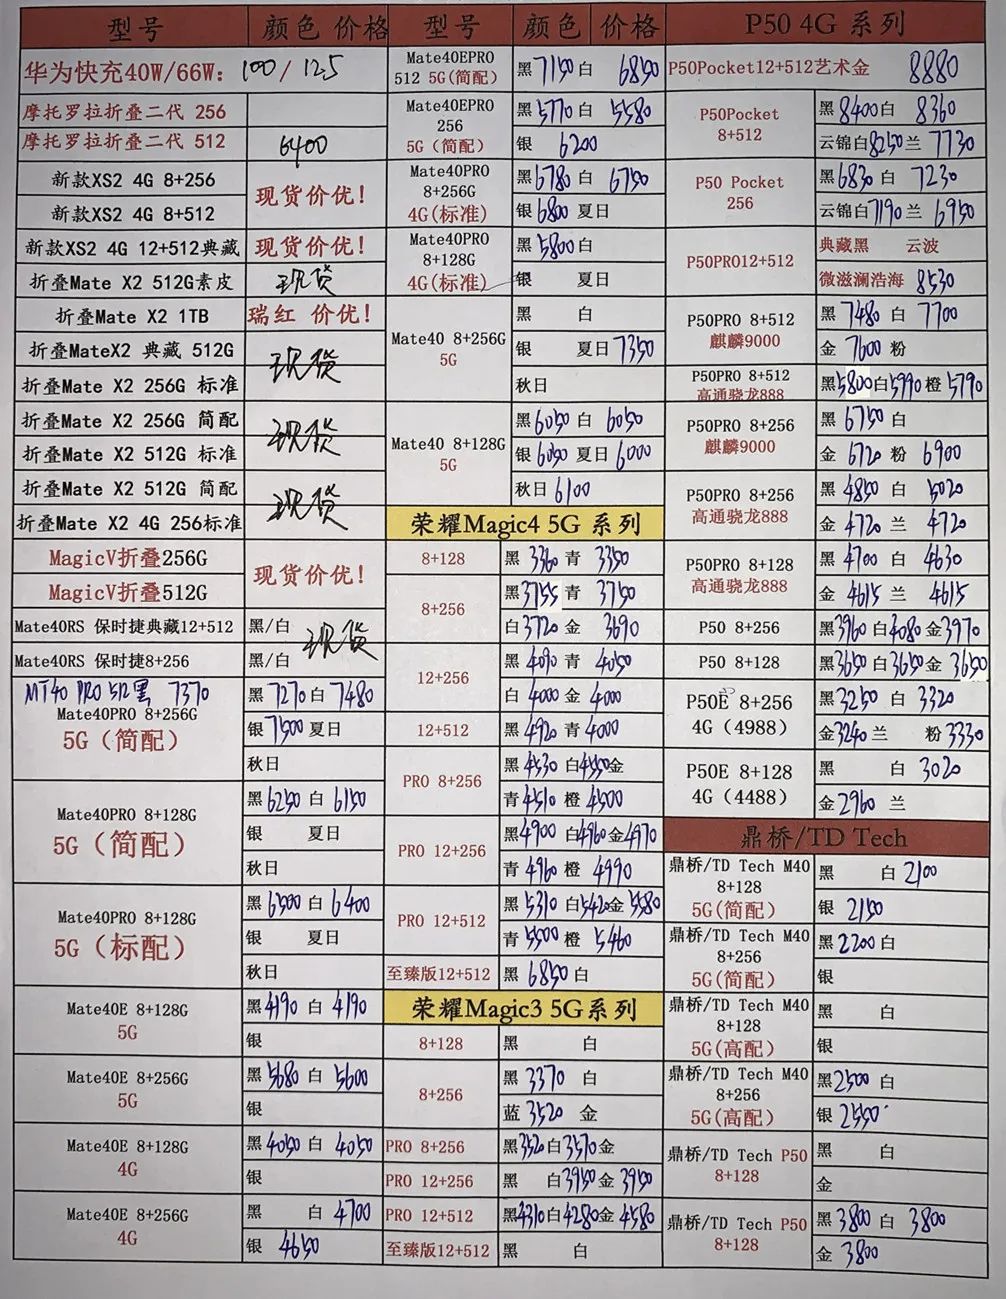 型号 颜色 价格
华为快充40W/66W: 100 / 125
摩托罗拉折叠二代 256
摩托罗拉折叠二代 512 6400
新款XS2 4G 8+256 现货价优!
新款XS2 4G 8+512
新款XS2 4G 12+512典藏 现货价优!
折叠Mate X2 512G素皮 现货
折叠Mate X2 1TB 瑞红 价优!
折叠MateX2 典藏 512G 现货
折叠Mate X2 256G 标准
折叠Mate X2 256G 简配 现货
折叠Mate X2 512G 标准
折叠Mate X2 512G 简配 现货
折叠Mate X2 4G 256标准
MagicV折叠256G 现货价优!
MagicV折叠512G
Mate40RS 保时捷典藏12+512 黑/白 现货
Mate40RS 保时捷8+256 黑/白
MT40 PRO 512黑 7370
Mate40PRO 8+256G
5G(简配)
黑 7270 白 7480
银 7500 夏日
秋日
Mate40PRO 8+128G
5G(简配)
黑 6250 白 6150
银 夏日
秋日
Mate40PRO 8+128G
5G(标配)
黑 6500 白 6400
银 夏日
秋日
Mate40E 8+128G
5G
黑 4190 白 4190
银
Mate40E 8+256G
5G
黑 5680 白 5600
银
Mate40E 8+128G
4G
黑 4050 白 4050
银
Mate40E 8+256G
4G
黑 白 4700
银 4650
型号 颜色 价格
Mate40EPRO
512 5G(简配)
黑 7150 白 6850
Mate40EPRO
256
5G(简配)
黑 5770 白 5580
银 6200
Mate40PRO
8+256G
4G(标准)
黑 6780 白 6750
银 6800 夏日
Mate40PRO
8+128G
4G(标准)
黑 5800 白
银 夏日
Mate40 8+256G
5G
黑 白
银 夏日 7350
秋日
Mate40 8+128G
5G
黑 6050 白 6050
银 6050 夏日 6000
秋日 6100
荣耀Magic4 5G 系列
8+128 黑 3360 青 3350
8+256
黑 3755 青 3750
白 3720 金 3690
12+256
黑 4090 青 4050
白 4000 金 4000
12+512 黑 4920 青 4000
PRO 8+256
黑 4530 白 4550 金
青 4510 橙 4500
PRO 12+256
黑 4900 白 4960 金 4970
青 4960 橙 4990
PRO 12+512
黑 5310 白 5420 金 5580
青 5500 橙 5460
至臻版12+512 黑 6850 白
荣耀Magic3 5G系列
8+128 黑 白
8+256
黑 3370 白
蓝 3520 金
PRO 8+256 黑 3520 白 3570 金
PRO 12+256 黑 白 3950 金 3950
PRO 12+512 黑 4310 白 4280 金 4580
至臻版12+512 黑 白
P50 4G 系列
P50Pocket12+512艺术金 8880
P50Pocket
8+512
黑 8400 白 8360
云锦白 8250 兰 7730
P50 Pocket
256
黑 6830 白 7230
云锦白 7190 兰 6950
P50PRO12+512
典藏黑 云波
微滋澜浩海 8530
P50PRO 8+512
麒麟9000
黑 7480 白 7700
金 7600 粉
P50PRO 8+512
高通骁龙888
黑 5800 白 5990 橙 5790
P50PRO 8+256
麒麟9000
黑 6750 白
金 6720 粉 6900
P50PRO 8+256
高通骁龙888
黑 4850 白 5020
金 4720 兰 4720
P50PRO 8+128
高通骁龙888
黑 4700 白 4630
金 4615 兰 4615
P50 8+256 黑 3960 白 4080 金 3970
P50 8+128 黑 3650 白 3650 金 3650
P50E 8+256
4G (4988)
黑 3250 白 3320
金 3240 兰 粉 3330
P50E 8+128
4G (4488)
黑 白 3020
金 2960 兰
鼎桥/TD Tech
鼎桥/TD Tech M40
8+128
5G(简配)
黑 白 2100
银 2150
鼎桥/TD Tech M40
8+256
5G(简配)
黑 2200 白
银
鼎桥/TD Tech M40
8+128
5G(高配)
黑 白
银
鼎桥/TD Tech M40
8+256
5G(高配)
黑 2500 白
银 2550
鼎桥/TD Tech P50
8+128
黑 白
金
鼎桥/TD Tech P50
8+128
黑 3800 白 3800
金 3800